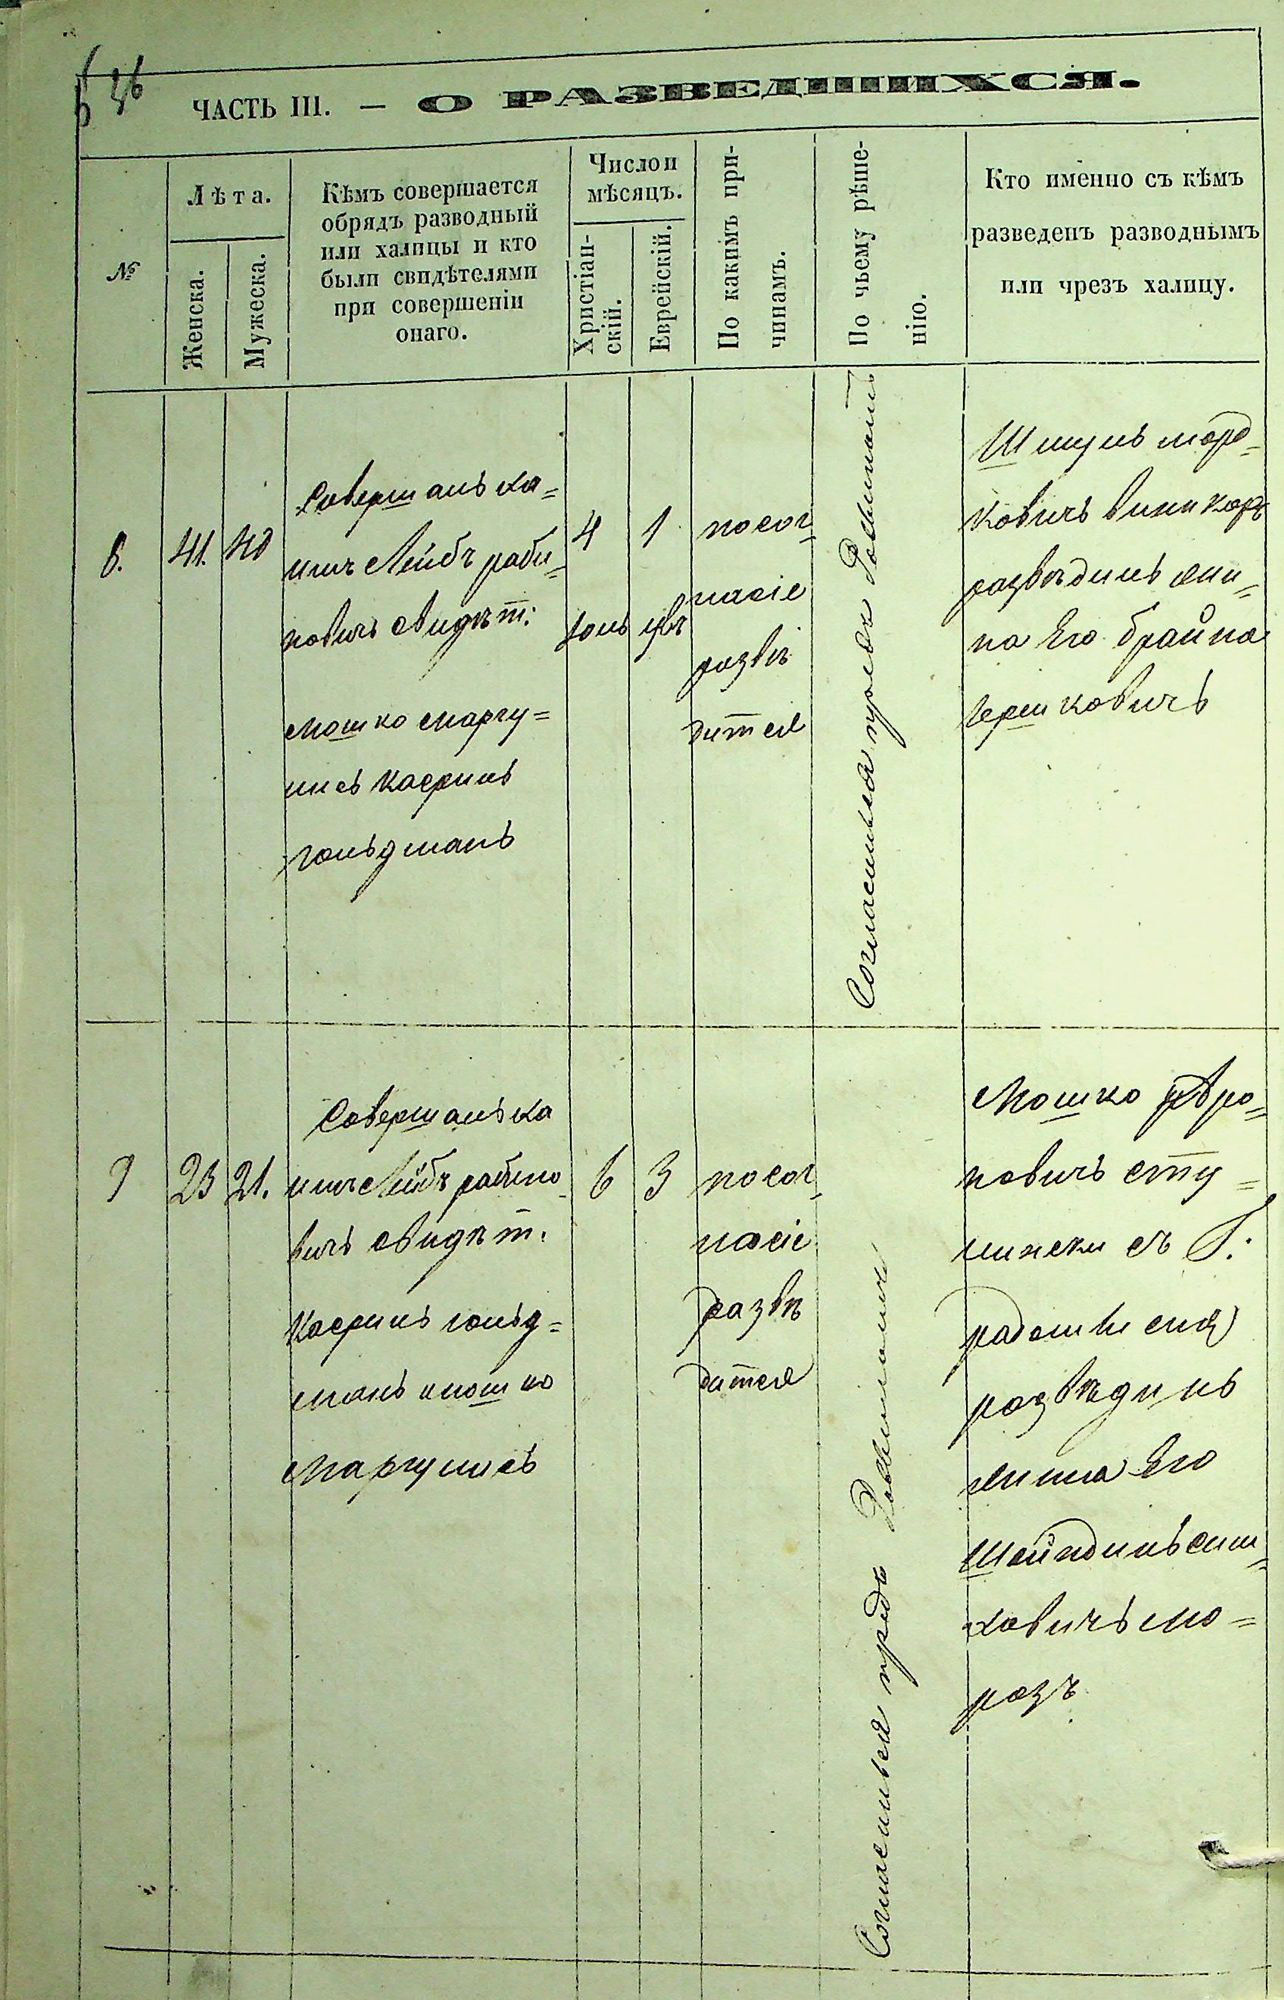 36
ЧАСТЬ III. — О РАЗВЕДШИХСЯ.
№
Лѣта.
Женска.
Мужеска.
Кѣмъ совершается
обрядъ разводный
или халицы и кто
были свидѣтелями
при совершеніи
онаго.
Число и
мѣсяцъ.
Христіан-
скій.
Еврейскій.
По какимъ при-
чинамъ.
По чьему рѣше-
нію.
Кто именно съ кѣмъ
разведенъ разводнымъ
или чрезъ халицу.
8.
41.
40
Совершалъ ка=
Лейбъ раби=
новичъ свидѣт:
мошко маргу=
лисъ касрилъ
гольдманъ
4
1
по сог-
ласіе
развѣ
дится
Согласилься Раввиномъ
Шмуль морд-
ковичъ виникоръ
развѣдилъ жи=
на Его брайна
гершковичъ
9
23
21.
Совершалъ ка
Лейбъ рабино
вичъ свидѣт.
Касрилъ гольд=
манъ мошко
маргулисъ
6
3
по сог-
ласіе
развѣ
дится
Согласилься предъ Раввиномъ
Мошко
новичъ сту=
съ Г:
развѣдилъ
жина Его
ховичъ мо=
розъ